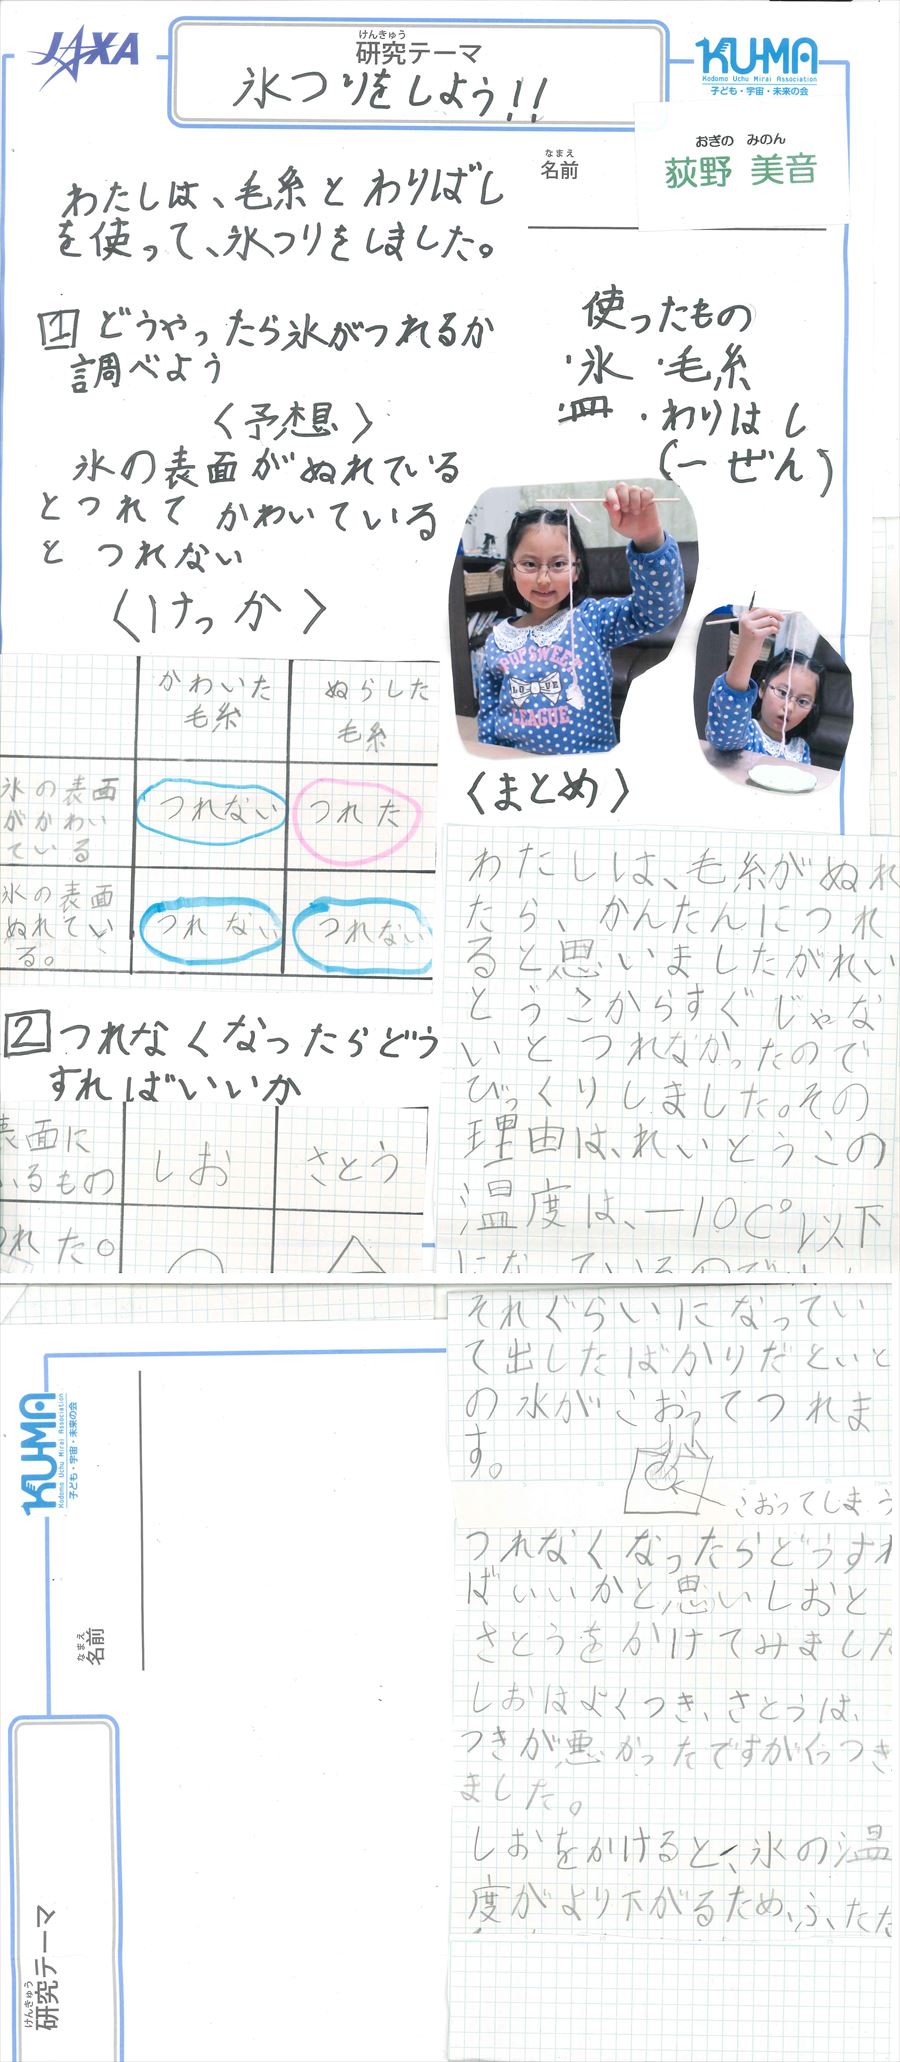 JAXA
けんきゅう
研究テーマ
氷つりをしよう!!
KU-MA
Kodomo Uchu Mirai Association
子ども・宇宙・未来の会
なまえ
名前
おぎの みのん
荻野 美音
わたしは、毛糸とわりばし
を使って、氷つりをしました。
1 どうやったら氷がつれるか
調べよう
〈予想〉
氷の表面がぬれている
とつれて かわいている
と つれない
〈けっか〉
使ったもの
・氷 ・毛糸
・皿 ・わりはし
(一ぜん)
POP&SWEET
LOVE
LEAGUE
かわいた
毛糸
ぬらした
毛糸
氷の表面
がかわい
ている
つれない
つれた
氷の表面
ぬれてい
る。
つれない
つれない
2 つれなくなったらどう
すればいいか
表面に
いるもの
しお
さとう
れた。
〈まとめ〉
わたしは、毛糸がぬれ
たら、かんたんにつれ
ると思いましたがれい
とうこからすぐじゃな
いとつれなかったので
びっくりしました。その
理由は、れいとうこの
温度は、-10C°以下
になっているので
それぐらいになってい
て出したばかりだといと
の水がこおってつれま
す。
こおってしまう
つれなくなったらどうすれ
ばいいかと思いしおと
さとうをかけてみました
しおはよくつき、さとうは、
つきが悪かったですがくっつき
ました。
しおをかけると、氷の温
度がより下がるため、ふたた
KU-MA
Kodomo Uchu Mirai Association
子ども・宇宙・未来の会
なまえ
名前
けんきゅう
研究テーマ